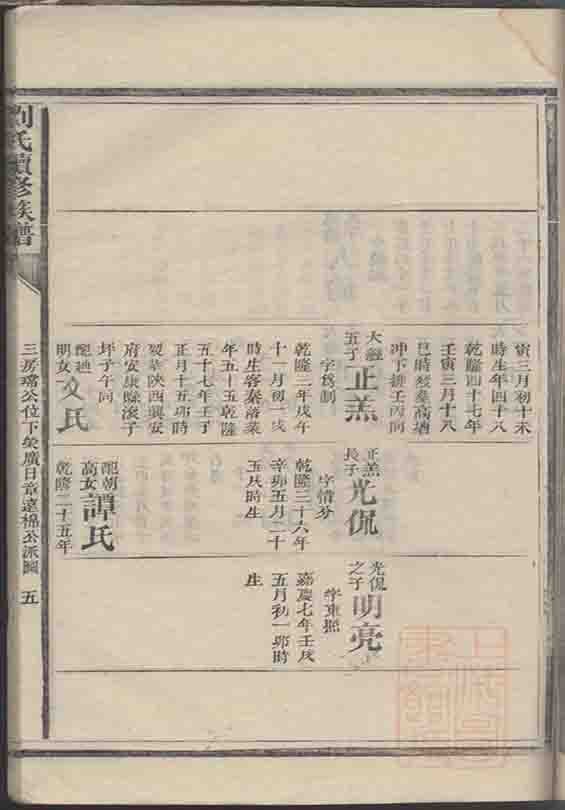 寅三月初十未
時生年四十八
乾隆四十七年
壬寅三月十八
巳時歿葬高塘
冲下排壬丙向
大經
五子
正羔
字為制
乾隆三年戊午
十一月初一戌
時生客秦落業
年五十五乾隆
五十七年壬子
正月十五卯時
歿葬陜西興安
府安康縣滚子
坪子午向
配廸
明女
文氏
正羔
長子
光侃
字惜分
乾隆三十六年
辛卯五月二十
五戌時生
配朝
高女
譚氏
乾隆二十五年
光侃
之子
明亮
字東照
嘉慶七年壬戌
五月初一卯時
生
劉氏續修族譜
三房瑞公位下癸廣日章達棉公派圖 五